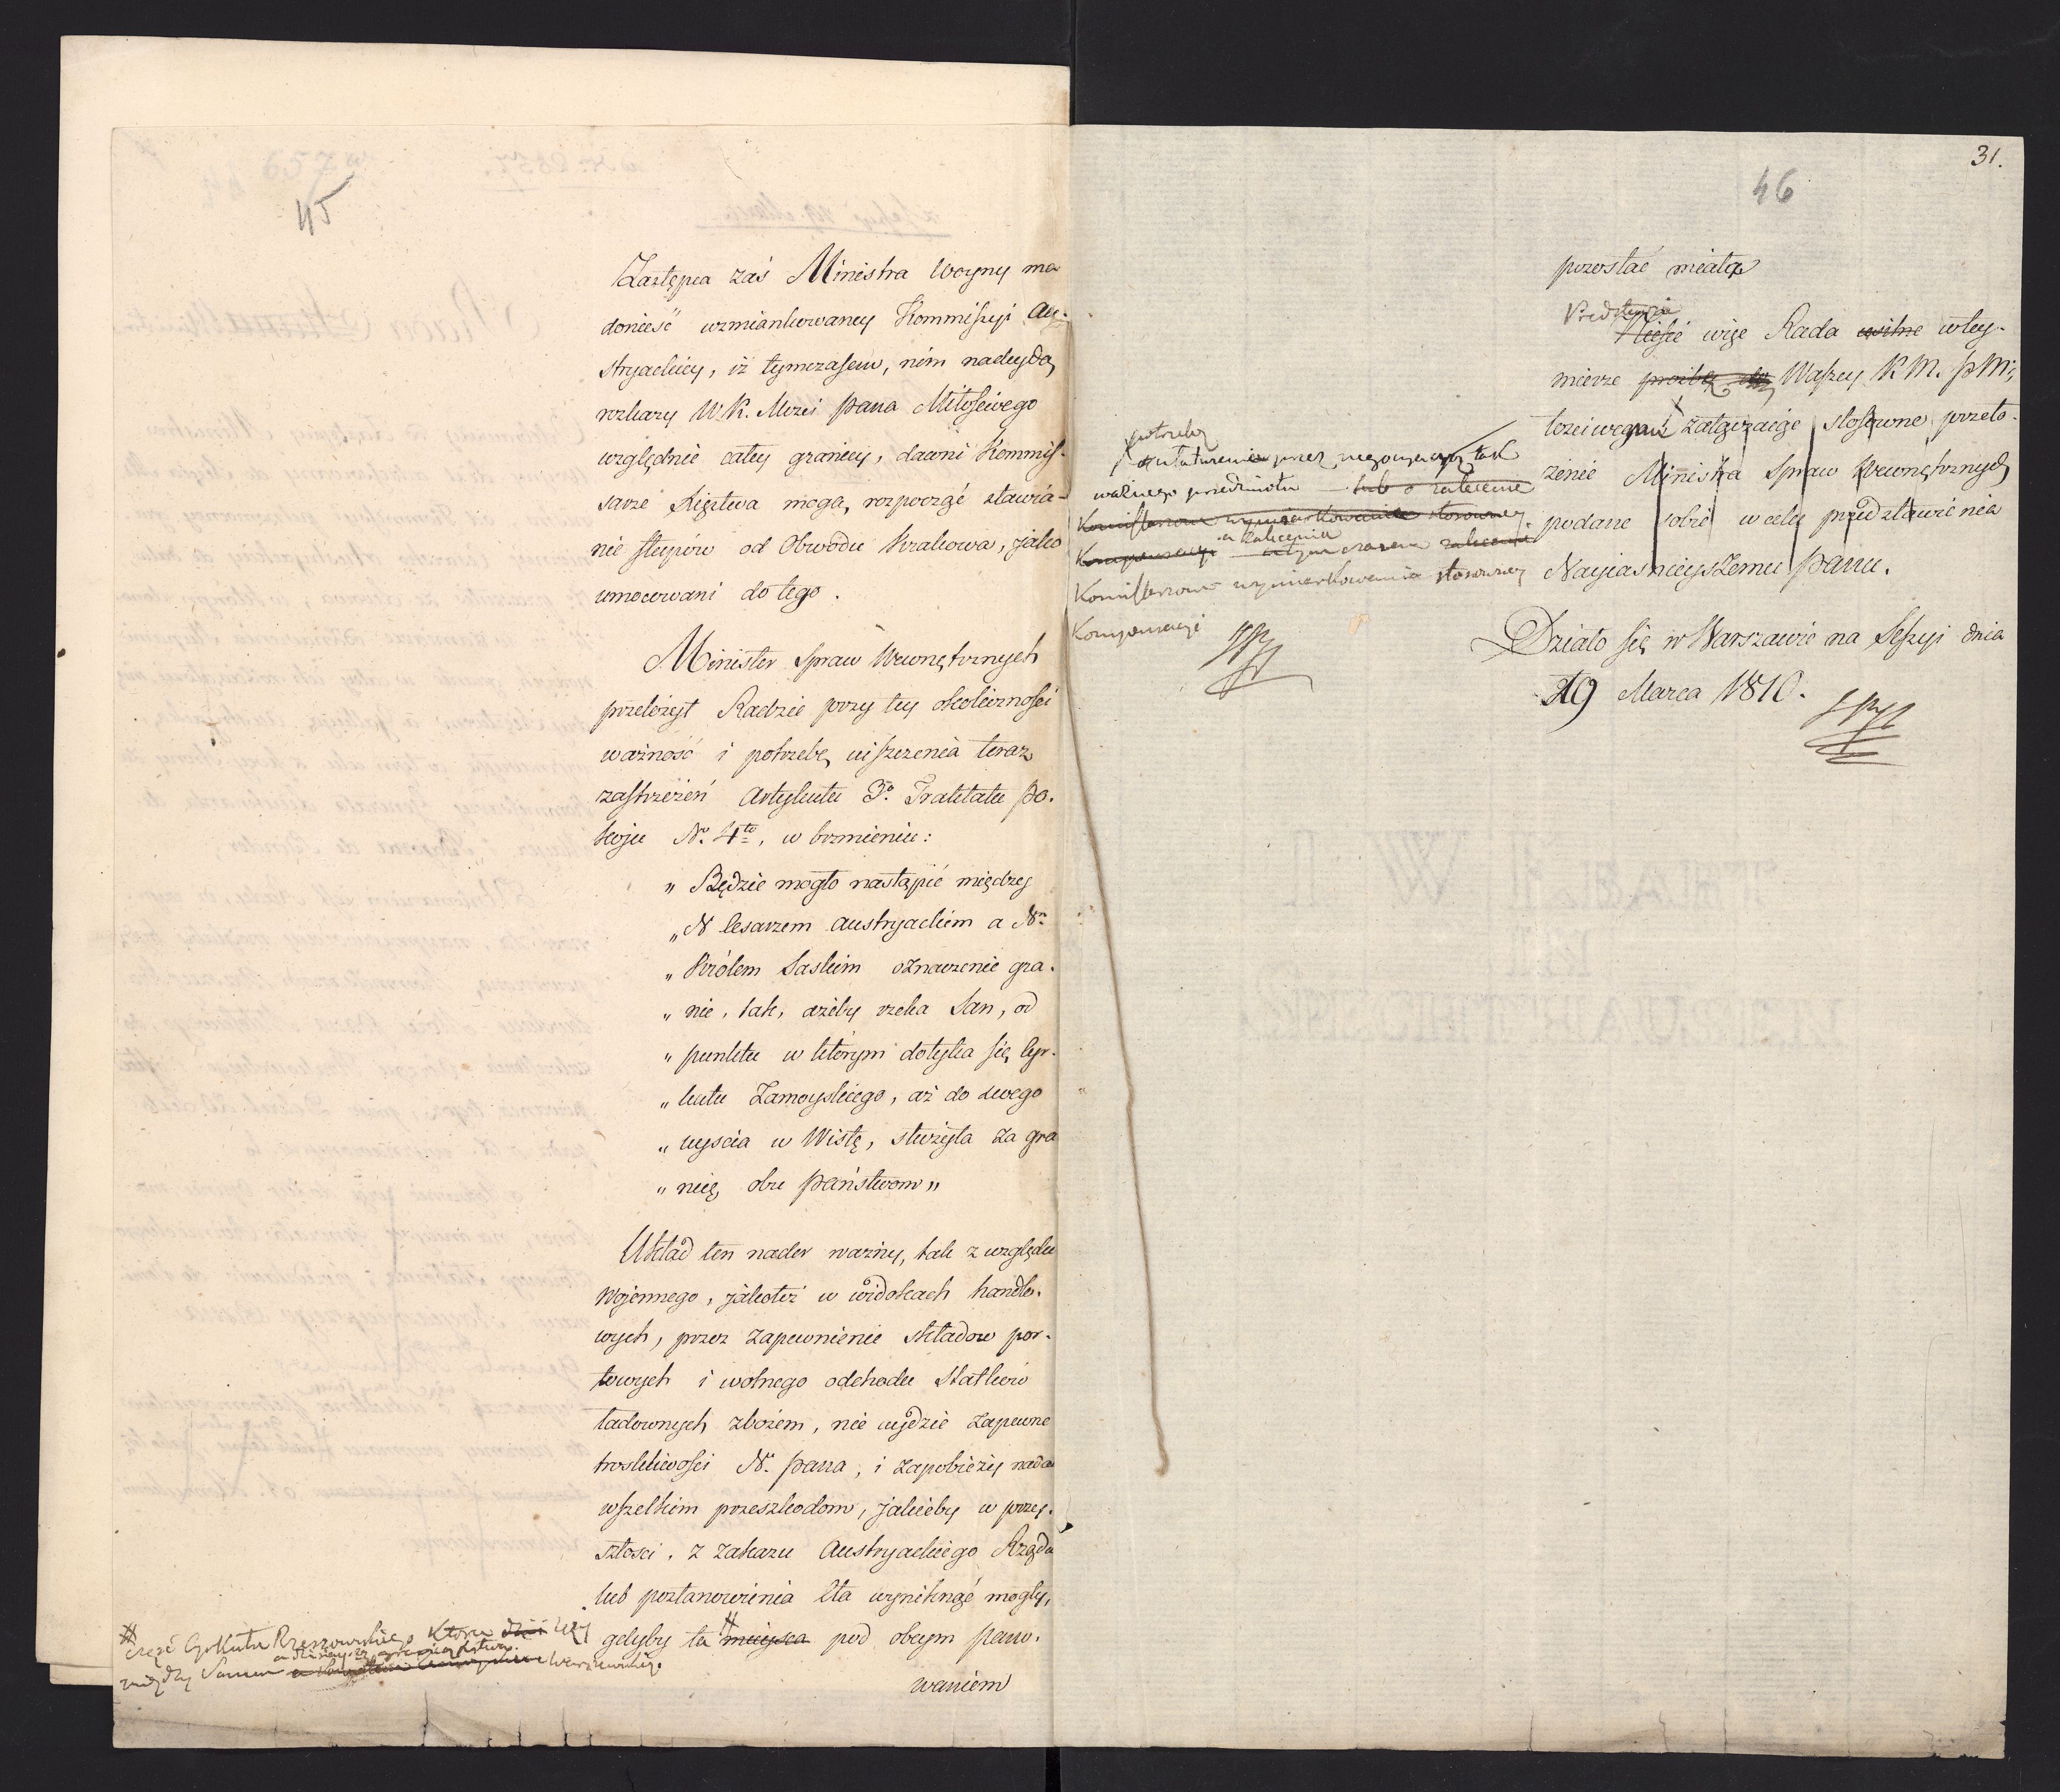 45
Zastępca zaś Ministra Woyny ma
donieść wzmiankowaney Kommissyi Au-
stryackiey, iż tymczasem, nim nadeydą
rozkazy W. K. Mości Pana Miłościwego
względnie całey granicy, dawni Kommis-
sarze Xięztwa mogą rozpocząć stawia-
nie słupów od Obwodu Krakowa, jako
umocowani do tego.
Minister Spraw Wewnętrznych
przełożył Radzie przy tey okoliczności
ważność i potrzebę uiszczenia teraz
zastrzeżeń Artykułu 3o. Traktatu Po-
koju No. 4to, w brzmieniu:
„ Będzie mogło nastąpić między
„ N Cesarzem Austryackim a Nm
„ Królem Saskim oznaczenie gra-
„ nic, tak, ażeby rzeka San, od
„ punktu w którym dotyka się Cyr-
„ kułu Zamoyskiego, aż do swego
„ uyscia w Wisłę, służyła za gra
„ nicę obu Państwom „
Układ ten nader ważny, tak z względu
Wojennego, jakoteż w widokach handlo-
wych, przez zapewnienie składow por-
towych i wolnego odchodu Statków
ładownych zbożem, nie uydzie zapewne
troskliwości N. Pana, i zapobieży nada
wszelkim przeszkodom, jakieby w przy-
szłosci, z zakazu Austryackiego Rządu
lub postanowienia Cła wyniknąć mogły,
gdyby ta # mieysca pod obcym pano-
waniem
# część Cyrkułu Rzeszowskiego która dziś leży
między Sanem a Warszawskiego
31.
46
pozostać miała
Przedstawia
Niesie więc Rada w tey
mierze prośbę do Waszey K M. P Mi-
łościwego załączaiąc stosowne przeło-
żenie Ministra Spraw Wewnętrznych
podane sobie w celu przedstawienia
Nayiasnieyszemu Panu.
Działo się w Warszawie na Sessyi dnia
19 Marca 1810.
potrzebę
przez negocyacyą tak
ważnego przedmiotu lub o zalecenie
Komissarzom wymiarkowania stosowney
Kompensacyi a zalecenia
Komissarzom wymiarkowania stosowney
Kompensacyi